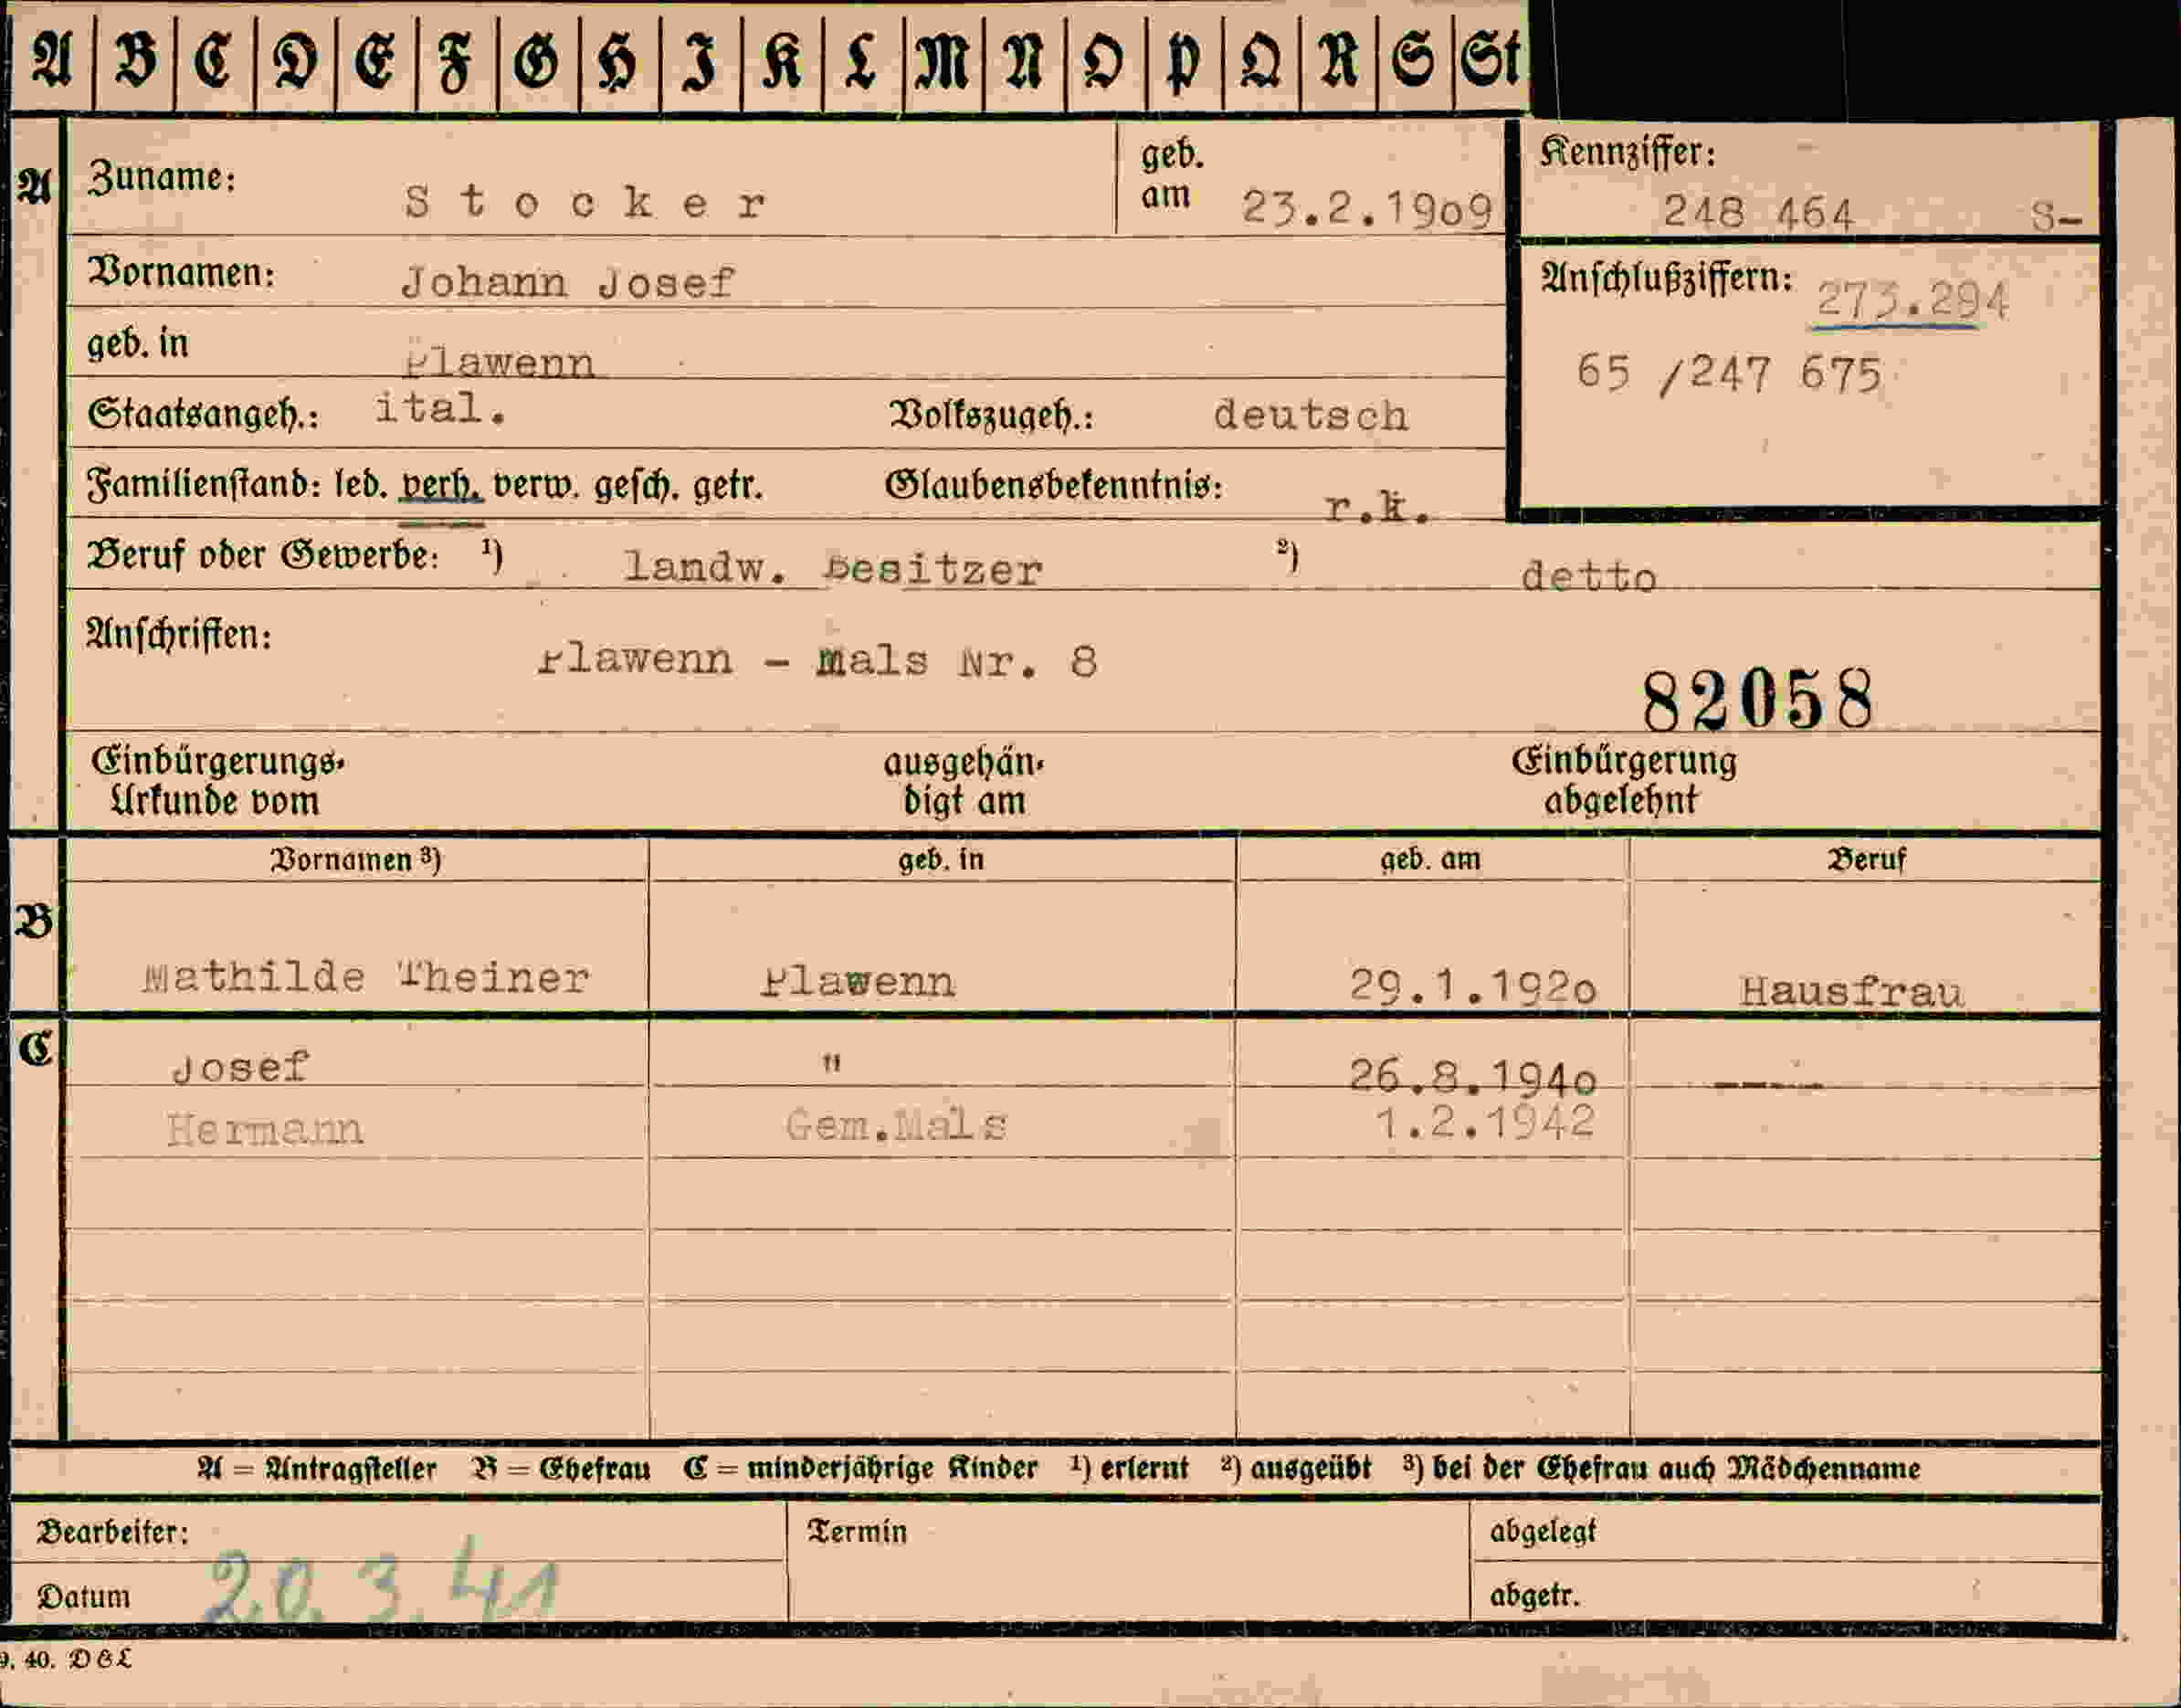 A B C D E F G H I K L M N O P Q R S St
A Zuname: Stocker geb. am 23.2.1909 Kennziffer: 248 464 S-
Vornamen: Johann Josef Anschlußziffern: 273.294
geb. in Plawenn 65 /247 675
Staatsangeh.: ital. Volkszugeh.: deutsch
Familienstand: led. verh. verw. gesch. getr. Glaubensbekenntnis: r.k.
Beruf oder Gewerbe: ¹) landw. Besitzer ²) detto
Anschriften: Plawenn - Mals Nr. 8
82058
Einbürgerungs- ausgehän- Einbürgerung
Urkunde vom digt am abgelehnt
Vornamen ³) geb. in geb. am Beruf
B Mathilde Theiner Plawenn 29.1.1920 Hausfrau
C Josef " 26.8.1940 ----
Hermann Gem.Mals 1.2.1942
A = Antragsteller B = Ehefrau C = minderjährige Kinder ¹) erlernt ²) ausgeübt ³) bei der Ehefrau auch Mädchenname
Bearbeiter: Termin abgelegt
Datum 20.3.41 abgetr.
9. 40. DEL